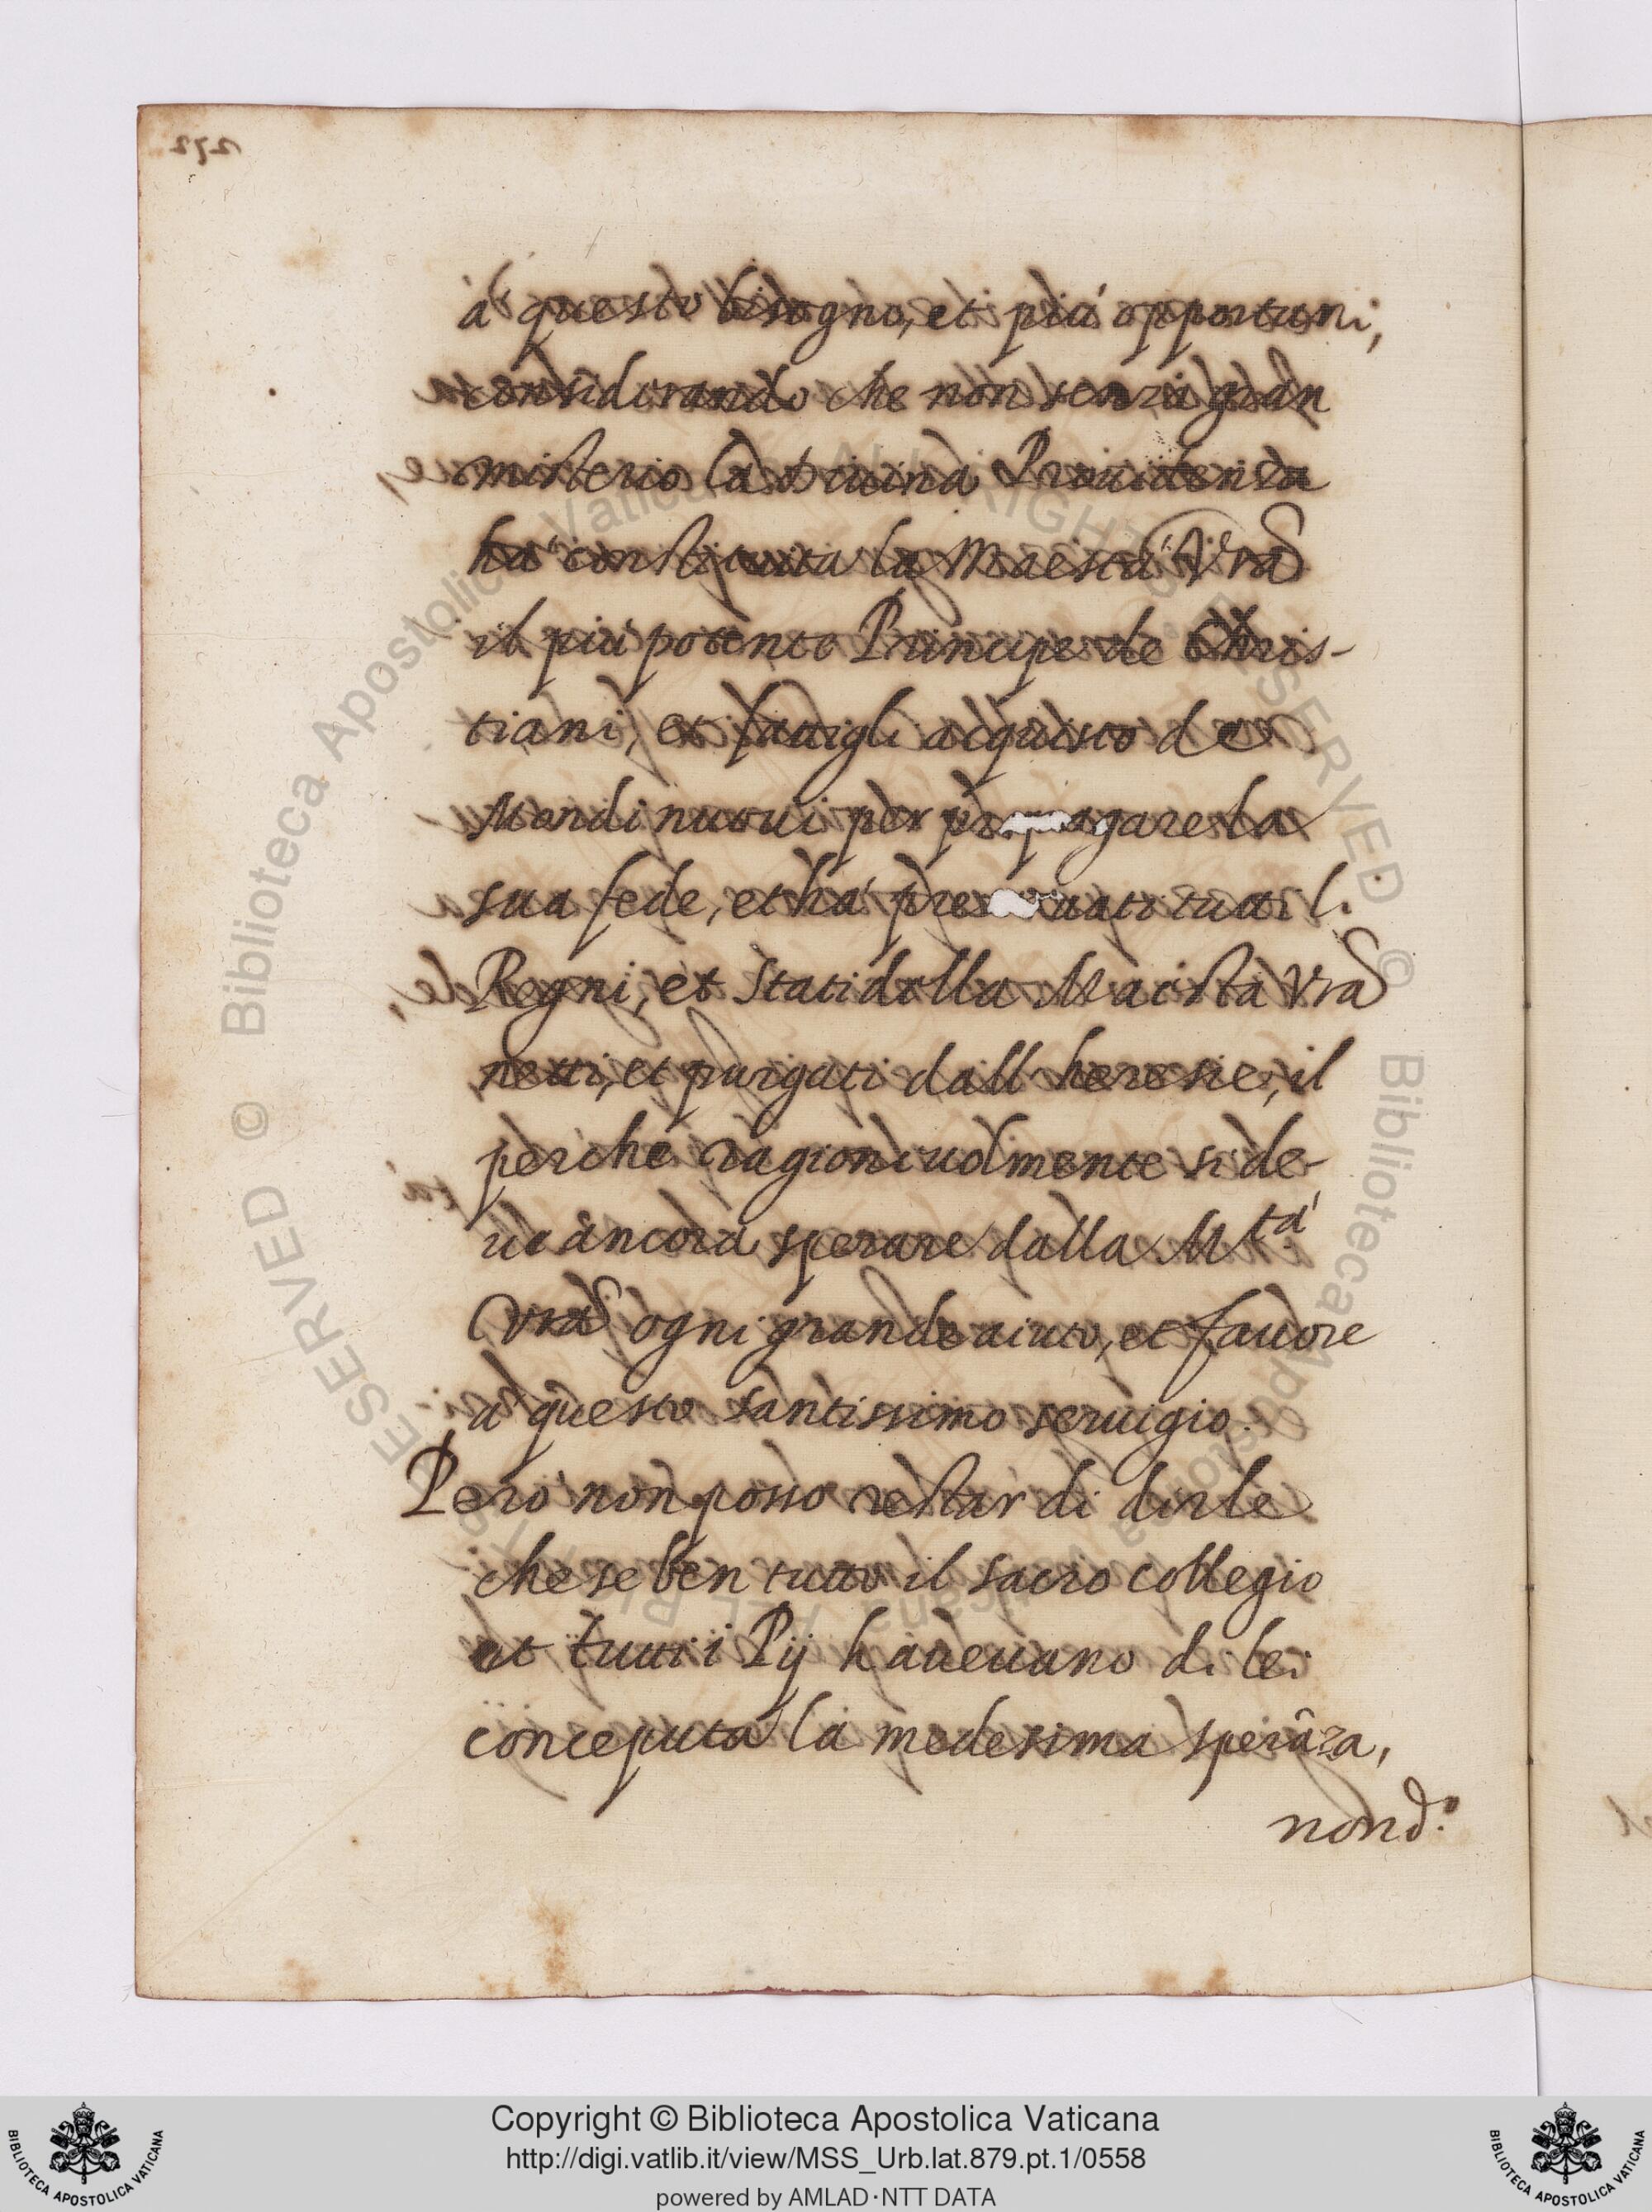 à questo bisogno, et più opportuni,
considerando che non senza gran
misterio la Divina Providenza
ha constituita la Maestà Vra
il più potente Principe de Chris-
tiani, et fattogli acquisto de
Mondi nuovi per propagare la
sua fede, et ha preservati tutti li
Regni, et Stati della Maestà Vra
netti, et purgati dall heresie, il
perche ragionevolmente si de-
ve ancora sperare dalla Mtà
Vra ogni grande aiuto, et favore
a questo santissimo servigio.
Però non posso restar di dirle
che se ben tutto il sacro collegio
et tutti i Pij havevano di lei
conceputa la medesima sperâza,
nond:
Copyright © Biblioteca Apostolica Vaticana
http://digi.vatlib.it/view/MSS_Urb.lat.879.pt.1/0558
powered by AMLAD·NTT DATA
BIBLIOTECA APOSTOLICA VATICANA
BIBLIOTECA APOSTOLICA VATICANA